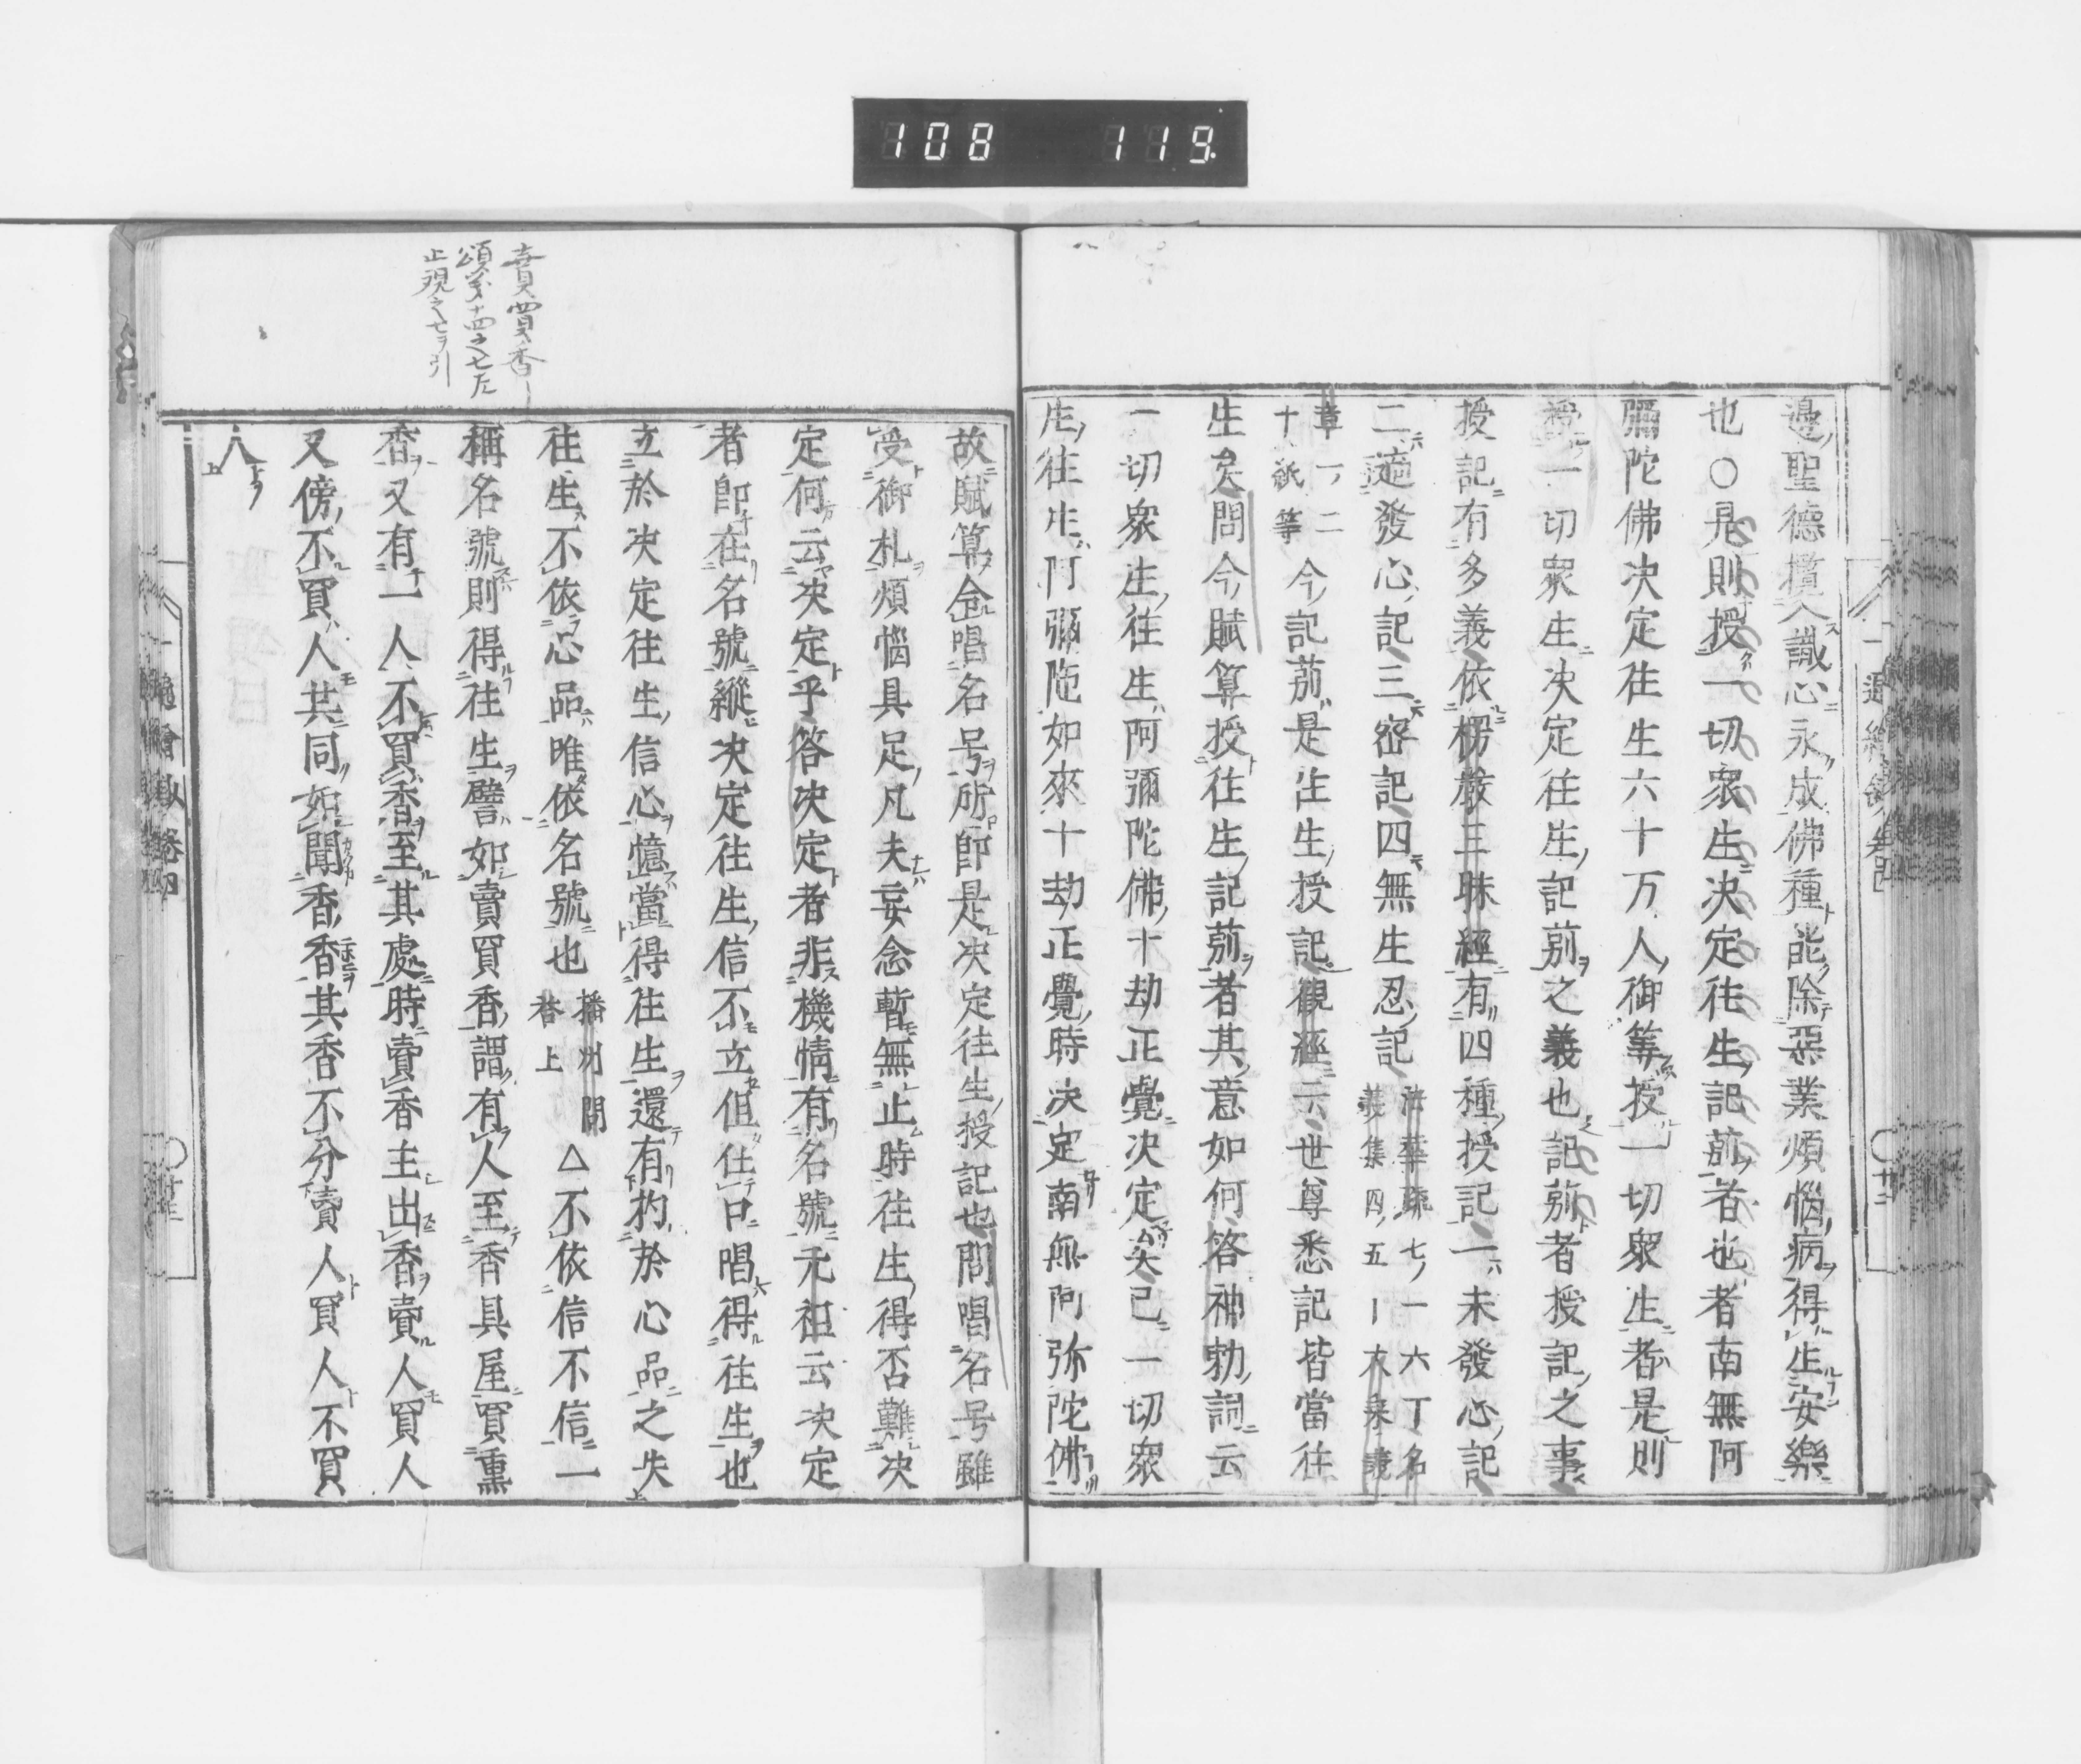 108 119
邊聖德攬入識心永成佛種能除惡業煩惱病得生安樂
也○是則授一切衆生決定往生記莂者也者南無阿
彌陀佛決定往生六十万人御等授一切衆生者是則
授一切衆生決定往生記莂之義也記莂者授記之事
授記有多義依楞嚴三昧經有四種授記一未發心記
二適發心記三密記四無生忍記
法華疏七ノ一六丁名
義集四五 大乘義
章一ノ二
十紙等
今記莂是往生授記觀經云世尊悉記皆當往
生矣問今賦算授往生記莂者其意如何答神勅詞云
一切衆生往生阿彌陀佛十劫正覺決定矣已一切衆
生往生阿彌陀如來十劫正覺時決定南無阿弥陀佛
故賦算令唱名号所即是決定往生授記也問唱名号雖
受御札煩惱具足凡夫妄念暫無止時往生得否難決
定何云決定乎答決定者非機情有名號元祖云決定
者即在名號縱決定往生信不立但任口唱得往生也
立於決定往生信心憶當得往生還有拘於心品之失
往生不依心品唯依名號也
播州問
答上
△不依信不信一
稱名號則得往生譬如賣買香謂有人至香具屋買薫
香又有一人不買香至其處時賣香主出香賣人買人
又傍不買人其同如聞香香其香不分賣人買人不買
人
賣買香
頌義十四之七左
止観之七ヲ引